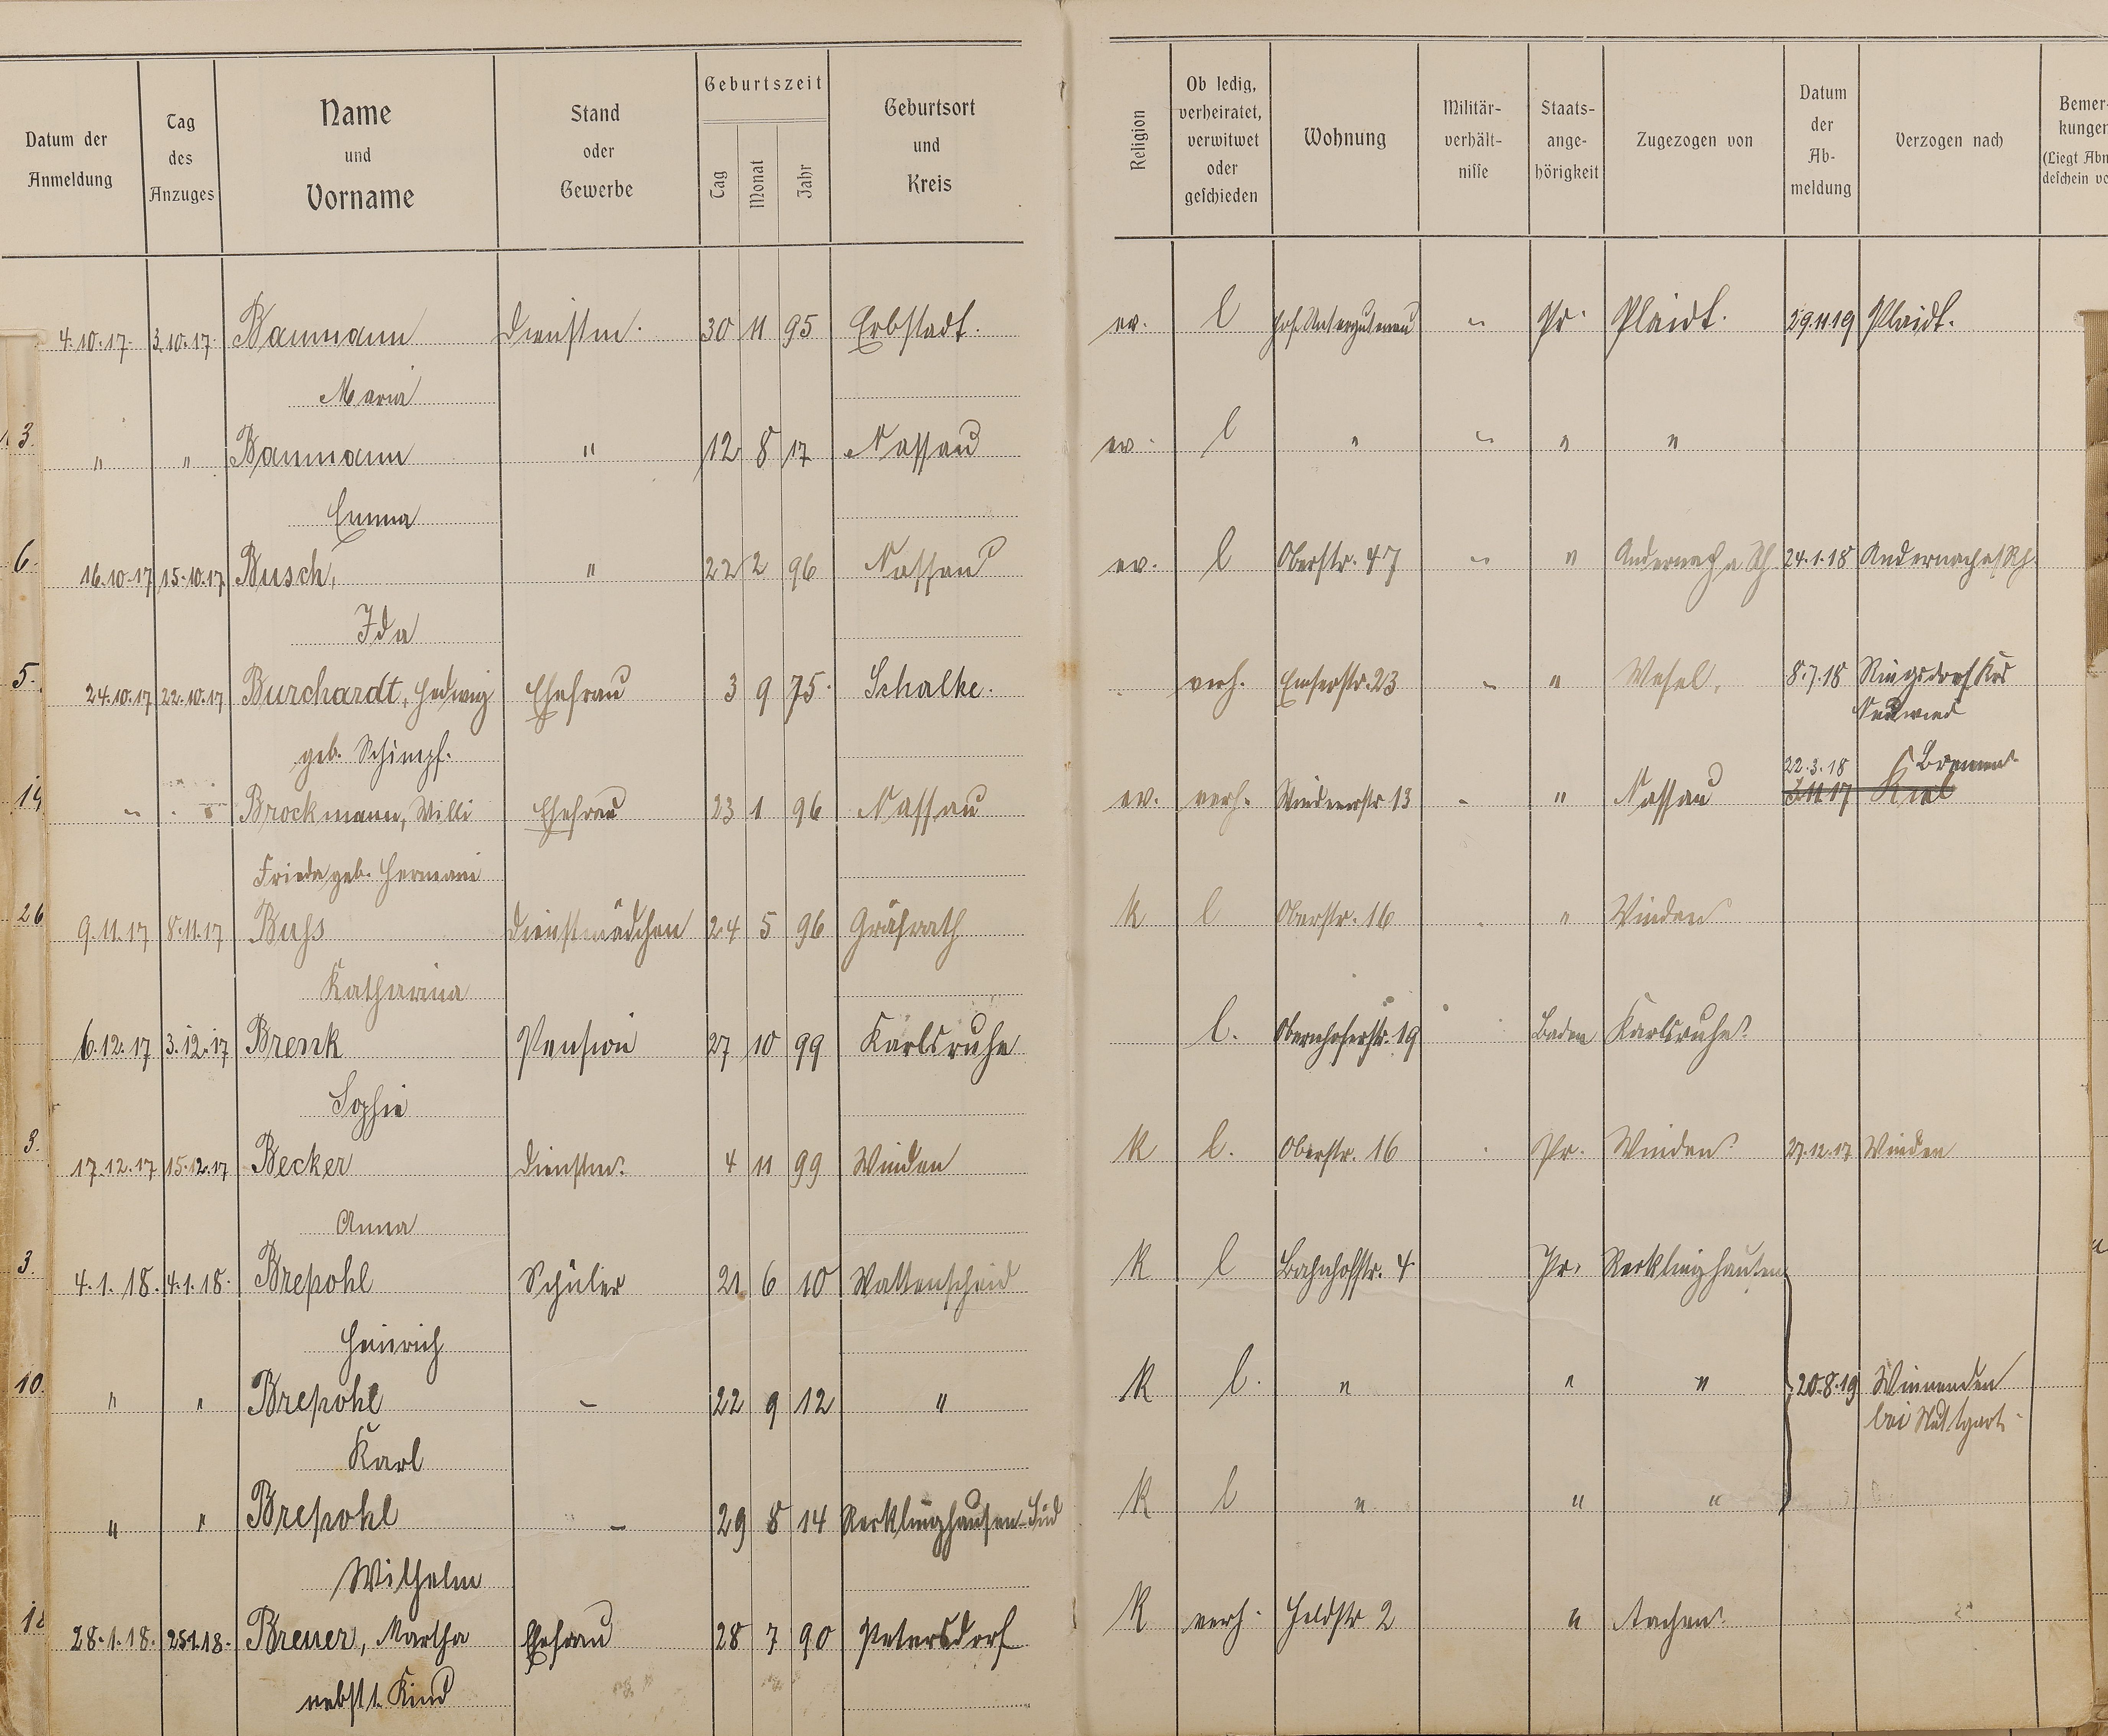 Datum der Anmeldung | Tag des Anzuges | Name und Vorname | Stand oder Gewerbe | Geburtszeit Tag Monat Jahr | Geburtsort und Kreis | Religion | Ob ledig, verheiratet, verwitwet oder geschieden | Wohnung | Militär-verhält-nisse | Staats-ange-hörigkeit | Zugezogen von | Datum der Ab-meldung | Verzogen nach | Bemer-kungen (Liegt Abm
4.10.17. 3.10.17. Baumann Dienstm. 30 11 95 Erbstadt. ev. l " Pr. Plaidt. 29.11 19 Plaidt.
Maria
3.
" " Baumann " 12 8 17 Nassau ev. l " " " "
Emma
6.
16.10.17 15.10.17 Busch, " 22 2 96 Nassau ev. l Oberstr. 47 " " Andernach a Rh. 24.1.18 Andernach a/Rh.
Ida
5.
24.10.17 22.10.17 Burchardt, Hedwig Ehefrau 3 9 75. Schalke. verh. Emserstr. 23 " " Wesel. 8.7.18 Ringsdorf Krs
Neuwied
geb. Schimpf.
22.3.18 Bremen
14
" " Brockmann, Willi Ehefrau 23 1 96 Nassau ev. verh. Windenerstr 13 " " Nassau 3.11 17 Kiel
Frieda geb. Hermani
26
9.11.17 8.11.17 Buhs Dienstmädchen 24 5 96 Gräfrath K l Oberstr. 16 " Winden
Katharina
6.12.17 3.12.17 Brenk Pension 27 10 99 Karlsruhe l. Obernhoferstr. 19 Baden Karlsruhe.
Sophie
3.
17.12.17 15.12.17 Becker Dienstm. 4 11 99 Winden K l. Oberstr. 16 Pr. Winden 27.12.17 Winden
Anna
3.
4.1.18. 4.1.18. Brepohl Schüler 21. 6 10 Wattenscheid K l Bahnhofstr. 4 Pr. Recklinghausen
Heinrich
10.
" " Brepohl – 22 9 12 " K l. " " " 20.8.19 Winnenden
bei Stuttgart.
Karl
" " Brepohl – 29 8 14 Recklinghausen-Süd K l " " "
Wilhelm
28.1.18. 25.1.18. Breuer, Martha Ehefrau 28 7 90 Petersdorf K verh. Feldstr 2 " Aachen.
nebst 1. Kind